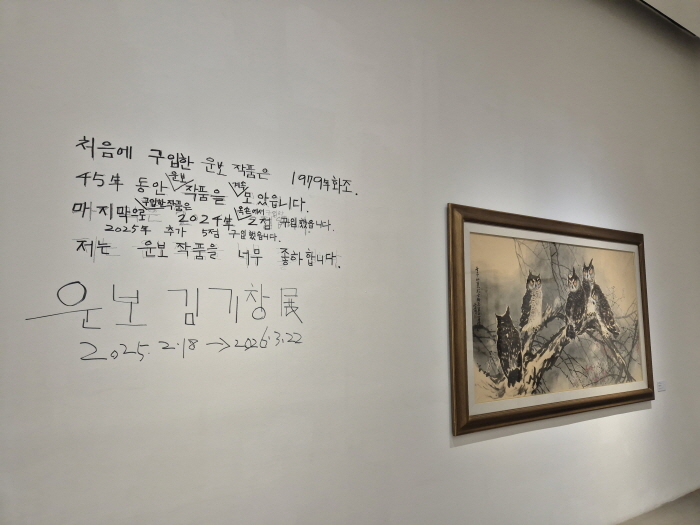 처음에 구입한 운보 작품은 1979年화조.
45年 동안 운보 작품을 계속 모았읍니다.
마지막으로 구입한작품은 2024年 옥션에서 2점 구입했습니다.
2025年 추가 5점 구입했읍니다.
저는 운보 작품을 너무 좋아합니다.
운보 김기창 展
2025. 2.18 → 2026.3.22